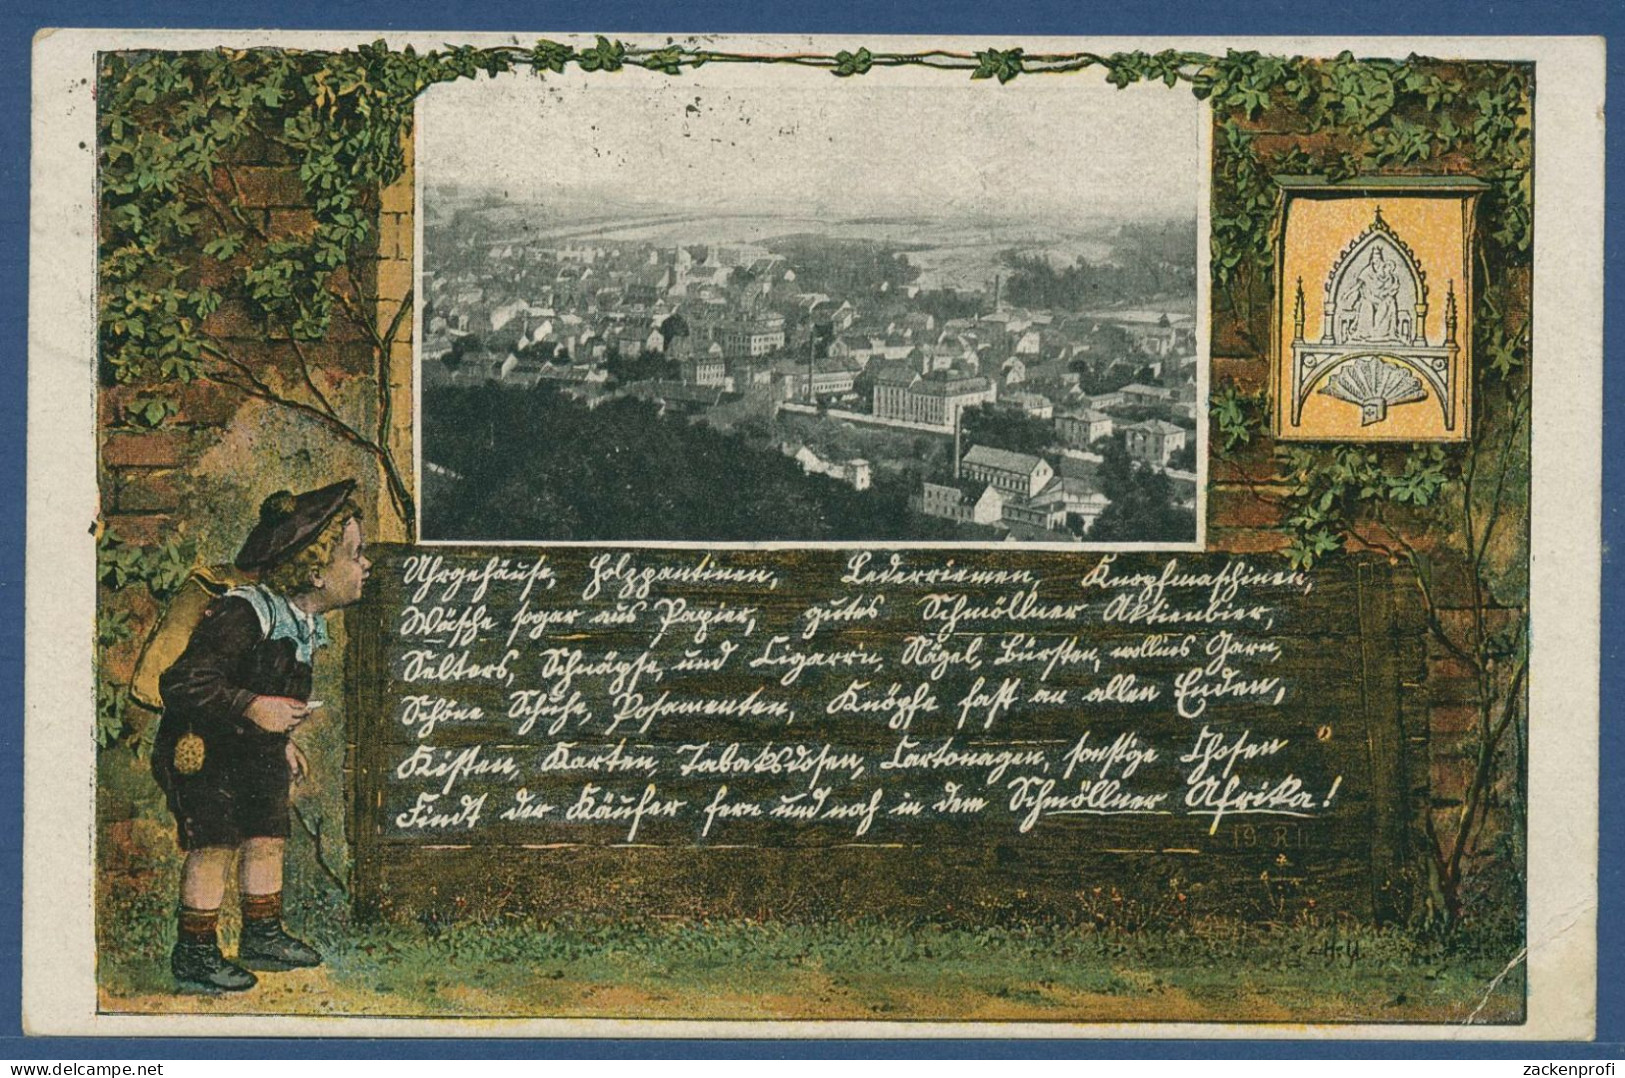 Uhrgehäuse, Holzpantinen, Lederriemen, Knopfmaschinen,
Wäsche sogar aus Papier, gutes Schmöllner Aktienbier,
Selters, Schnäpse und Cigarrn, Nägel, Bürsten, wollnes Garn,
Schöne Schuhe, Posamenten, Knöpfe fast an allen Enden,
Kisten, Karten, Tabaksdosen, Cartonagen, sonstge Chosen
Findt der Käufer fern und nah in dem Schmöllner Afrika!
H. U.
zackenprofi
www.delcampe.net